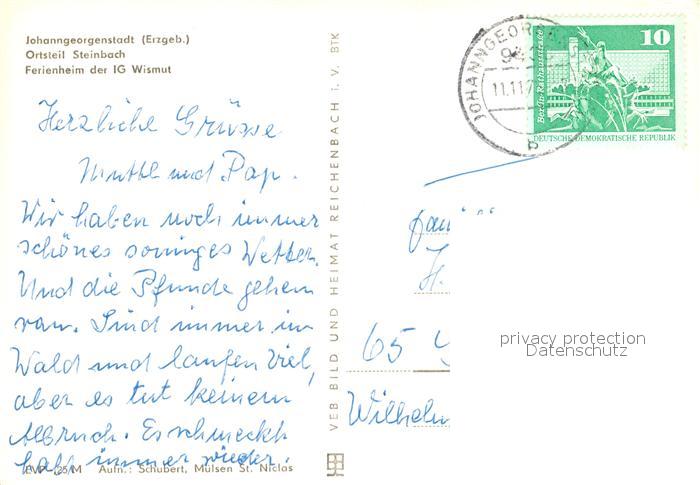 Johanngeorgenstadt (Erzgeb.)
Ortsteil Steinbach
Ferienheim der IG Wismut
Herzliche Grüsse
Mutti und Pap.
Wir haben noch immer
schönes sonniges Wetter.
Und die Pfunde gehen
ran. Sind immer im
Wald und laufen viel,
aber es tut keinem
Abbruch. Es schmeckt
halt immer wieder.
EVP -,25 M Aufn.: Schubert, Mülsen St. Niclas
VEB BILD UND HEIMAT REICHENBACH i. V. BTK
JOHANNGEORGE
11.11.7
b
10
Berlin, Rathausstraße
DEUTSCHE DEMOKRATISCHE REPUBLIK
Fam
H.
65
Wilhelm
privacy protection
Datenschutz